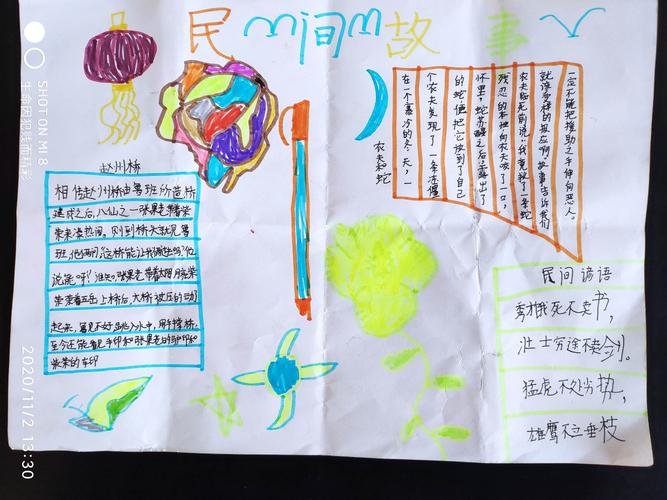 民间故事
赵州桥
相传赵州桥由鲁班所造,桥
建成之后,八仙之一张果老带着柴
荣来凑热闹。刚到桥头就见鲁
班,他俩问这桥能让我俩走吗?他
说能呀!谁知张果老带着太阳月亮柴
荣带着五岳上桥后,大桥被压的动
起来,鲁见不好跳入水中,用手撑桥,
至今还能看见手印和张果老的驴印和
柴荣的车印
农夫和蛇
在一个寒冷的冬天,一
个农夫发现了一条冻僵
的蛇便把它放到了自己
怀里,蛇苏醒之后露出了
残忍的本性向农夫咬了一口,
农夫临死前说:我竟救了一条蛇
就该受这样的报应啊!故事告诉我们
一定不能把援助之手伸向恶人。
民间谚语
秀才饿死不卖书,
壮士穷途不卖剑。
猛虎不处劣势,
雄鹰不立垂枝
SHOT ON MI 8
2020/11/2 13:30